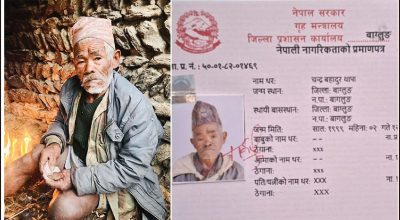 नेपाल सरकार
गृह मन्त्रालय
जिल्ला प्रशासन कार्यालय बाग्लुङ
नेपाली नागरिकताको प्रमाणपत्र
प्र. नं. : ५०-०१-८२-०१४६९
नाम थर: चन्द्र बहादुर थापा
जन्म स्थान: जिल्ला: बाग्लुङ
न.पा.: बाग्लुङ
स्थायी बासस्थान: जिल्ला: बाग्लुङ
न.पा.: बाग्लुङ
जन्म मिति: सात: १९९९ महिना: ०२ गते
बाबुको नाम थर: --
ठेगाना: xxx
आमाको नाम थर: --
ठेगाना: xxx
पति/पत्नीको नाम थर: XXX
ठेगाना: XXX